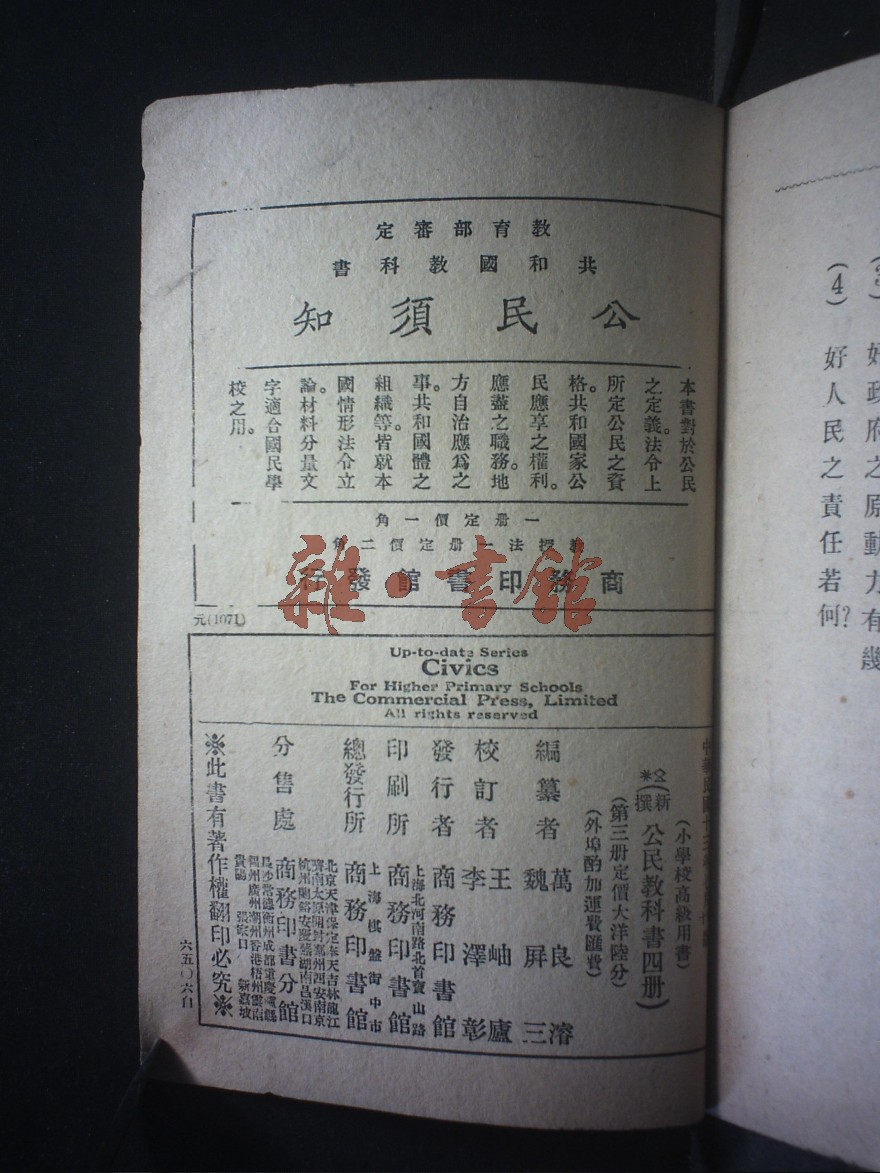 教育部審定
共和國教科書
公民須知
本書對於公民
之定義。法令上
所定公民之資
格。共和國家公
民應享之權利。
應盡之職務。地
方自治應爲之
事。共和國體之
組織等。皆就本
國情形法令立
論。材料分量文
字適合國民學
校之用。
一册定價一角
教授法一册定價二角
商務印書館發行
元(1071)
雜·書館
Up-to-date Series
Civics
For Higher Primary Schools
The Commercial Press, Limited
All rights reserved
(小學校高級用書)
(新撰 公民教科書四册)
(第三册定價大洋陸分)
(外埠酌加運費匯費)
編纂者 萬良濬
魏屏三
校訂者 王岫廬
李澤彰
發行者 商務印書館
上海北河南路北首寶山路
印刷所 商務印書館
上海棋盤街中市
總發行所 商務印書館
北京天津保定奉天吉林龍江
濟南太原開封鄭州西安南京
杭州蘭谿安慶蕪湖南昌漢口
分售處 商務印書分館
長沙常德衡州成都重慶瀘縣
福州廣州潮州香港梧州雲南
貴陽 張家口 新嘉坡
※此書有著作權翻印必究※
六五〇六自
(4) 好人民之責任若何?
好政府之原動力有幾